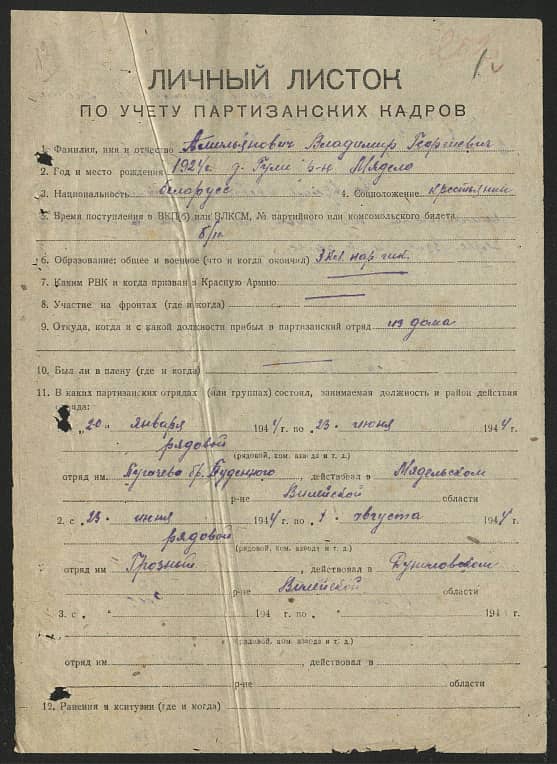 ЛИЧНЫЙ ЛИСТОК
ПО УЧЕТУ ПАРТИЗАНСКИХ КАДРОВ
1. Фамилия, имя и отчество Амильянович Владимир Георгиевич
2. Год и место рождения 1924г. д. Гули р-н Мядело
3. Национальность белорусс 4. Соцположение крестьянин
5. Время поступления в ВКП(б) или ВЛКСМ, № партийного или комсомольского билета
б/п
6. Образование: общее и военное (что и когда окончил) 3 кл. нар.
7. Каким РВК и когда призван в Красную Армию
8. Участие на фронтах (где и когда)
9. Откуда, когда и с какой должности прибыл в партизанский отряд из дома
10. Был ли в плену (где и когда)
11. В каких партизанских отрядах (или группах) состоял, занимаемая должность и район действия
"20" января 1944 г. по 23 июня 1944 г.
рядовой
(рядовой, ком. взвода и т. д.)
отряд им. Пугачева бр. Буденного, действовал в Мядельском
р-не Вилейской области
2. с 23 июня 1944 г. по 1 августа 1944 г.
рядовой
(рядовой, ком. взвода и т. д.)
отряд им Грозный, действовал в Дуниловском
р-не Вилейской области
3. с " 194 г. по " 194 г.
(рядовой, ком. взвода и т. д.)
отряд им., действовал в
р-не области
12. Ранения и контузии (где и когда)